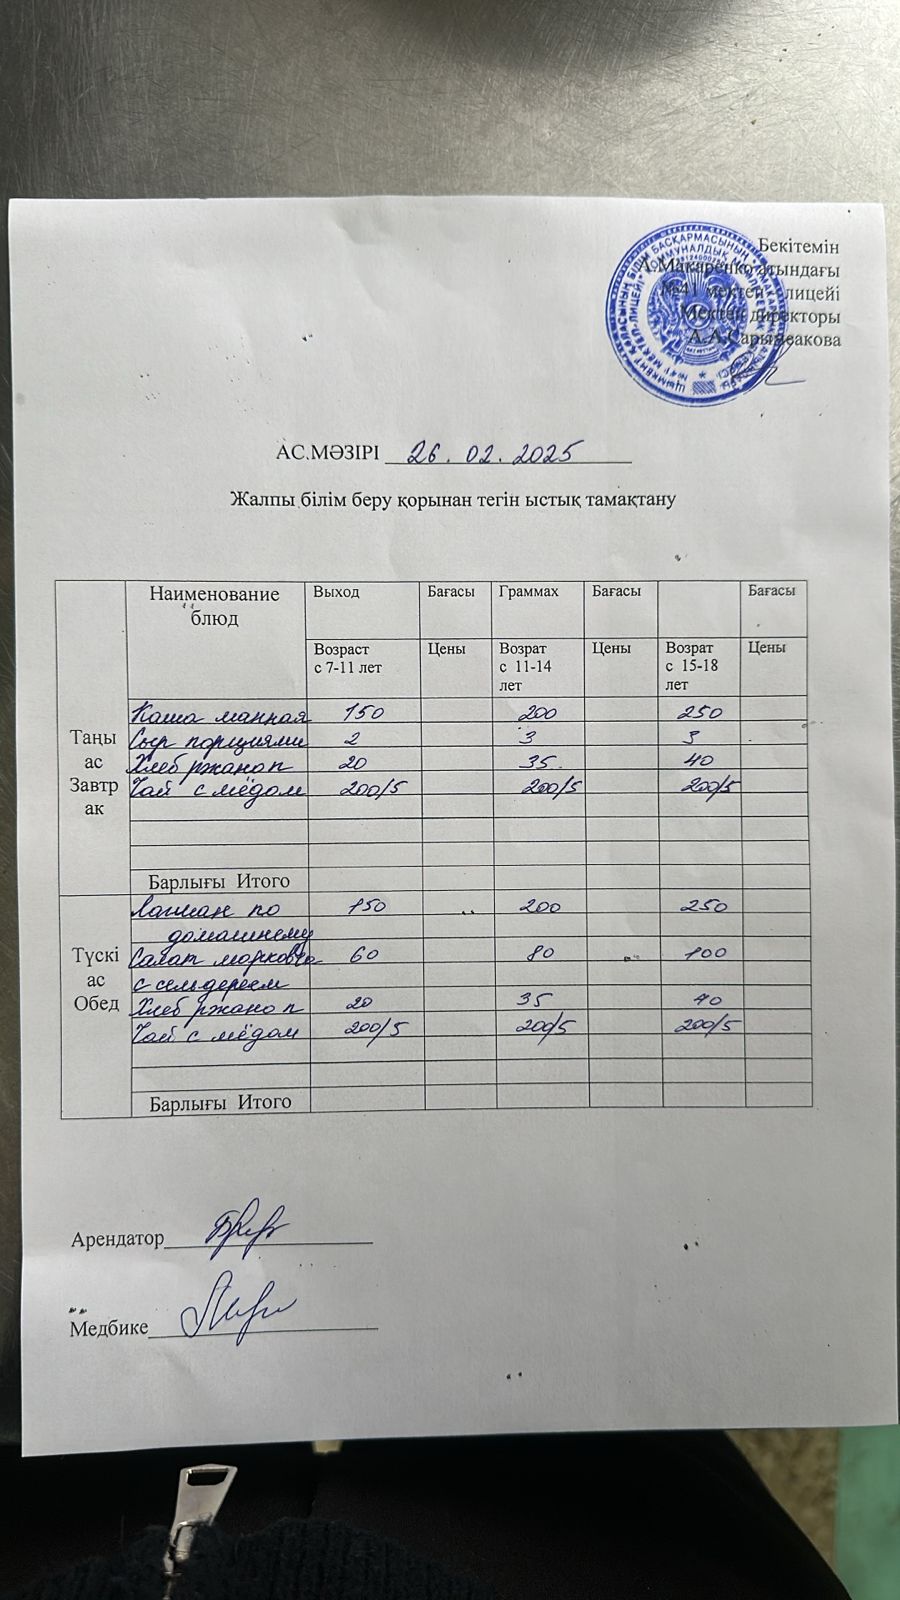 Бекітемін
А.Макаренко атындағы
№41 мектеп - лицейі
Мектеп директоры
А.А.Сарымсакова
АС.МӘЗІРІ 26.02.2025
Жалпы білім беру қорынан тегін ыстық тамақтану
Наименование блюд Выход Бағасы Граммах Бағасы Бағасы
Возраст с 7-11 лет Цены Возрат с 11-14 лет Цены Возрат с 15-18 лет Цены
Таңы ас Завтр ак
Каша манная 150 200 250
Сыр порциями 2 3 3
Хлеб ржано п 20 35 40
Чай с мёдом 200/5 200/5 200/5
Барлығы Итого
Түскі ас Обед
Лагман по 150 200 250
домашнему
Салат морковно 60 80 100
с сельдереем
Хлеб ржано п 20 35 40
Чай с мёдом 200/5 200/5 200/5
Барлығы Итого
Арендатор
Медбике